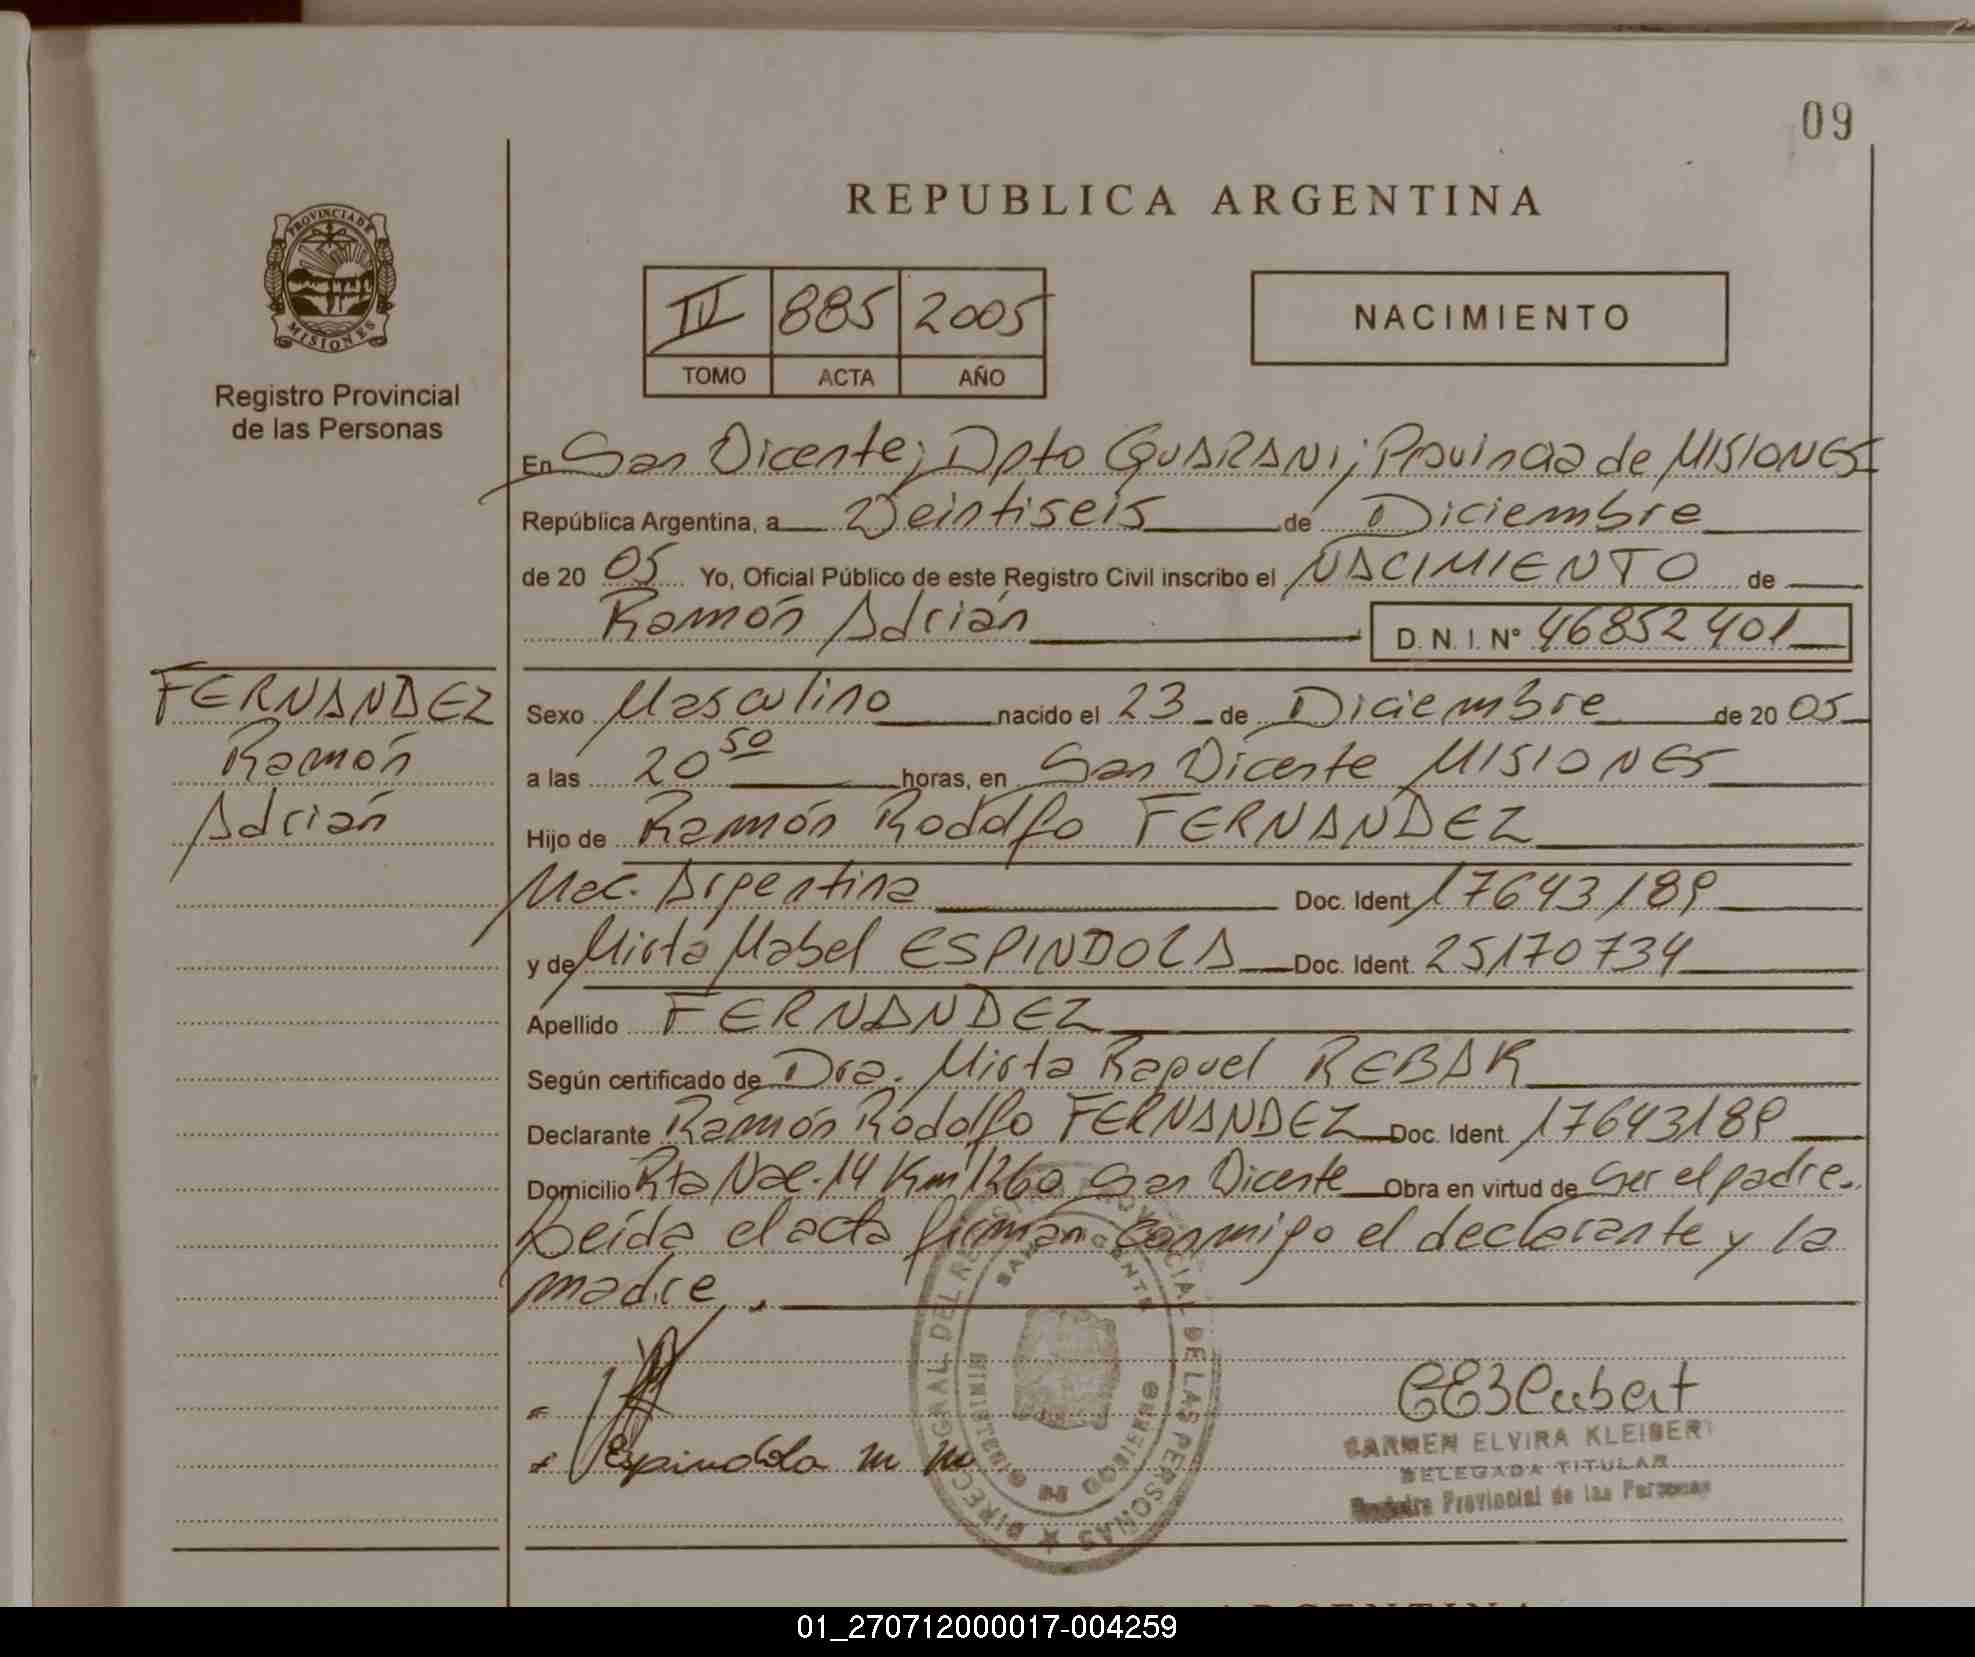 09
REPUBLICA ARGENTINA
PROVINCIA DE
MISIONES
Registro Provincial
de las Personas
IV 885 2005
TOMO ACTA AÑO
NACIMIENTO
En San Vicente; Dpto GUARANI; Provincia de MISIONES
República Argentina, a Veintiseis de Diciembre
de 20 05 Yo, Oficial Público de este Registro Civil inscribo el NACIMIENTO de
Ramón Adrián D.N.I. Nº 46852401
FERNANDEZ
Ramón
Adrián
Sexo Masculino nacido el 23 de Diciembre de 20 05
a las 20 50 horas, en San Vicente MISIONES
Hijo de Ramón Rodolfo FERNANDEZ
Nac. Argentina Doc. Ident 17643189
y de Mirta Mabel ESPINDOLA Doc. Ident. 25170734
Apellido FERNANDEZ
Según certificado de Dra. Mirta Raquel REBAK
Declarante Ramón Rodolfo FERNANDEZ Doc. Ident. 17643189
Domicilio Rta Nac. 14 Km 1260 San Vicente Obra en virtud de Ser el padre.
Leída el acta firman conmigo el declarante y la
madre.
Espindola m m
CARMEN ELVIRA KLEIBERT
DELEGADA TITULAR
Registro Provincial de las Personas
DIRECC GRAL DEL REGISTRO PROVINCIAL DE LAS PERSONAS
SAN VICENTE
MINISTERIO DE GOBIERNO
01_270712000017-004259